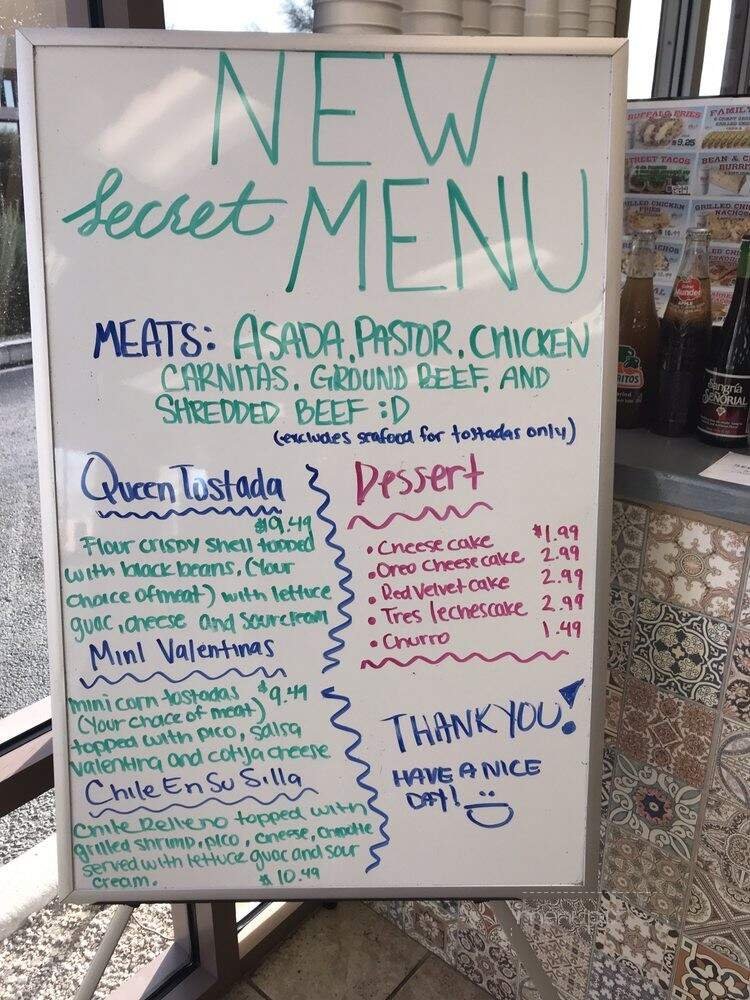 NEW
Secret MENU
MEATS: ASADA, PASTOR, CHICKEN
CARNITAS, GROUND BEEF, AND
SHREDDED BEEF :D
(excludes seafood for tostadas only)
Queen Tostada
Flour crispy shell topped
with black beans, (Your
choice of meat) with lettuce
guac, cheese and sour cream
Mini Valentinas
mini corn tostadas $9.49
(Your choice of meat)
topped with pico, salsa
valentina and cotija cheese
Chile En Su Silla
Chile Relleno topped with
grilled shrimp, pico, cheese, chipotle
served with lettuce guac and sour
cream.
$10.49
Dessert
• Cheese cake $1.99
• Oreo Cheese cake 2.99
• Red Velvet cake 2.99
• Tres leches cake 2.99
• Churro 1.49
THANK YOU!
HAVE A NICE
DAY!
BUFFALO FRIES
$9.25
STREET TACOS
BEAN & C
BURRI
GRILLED CHICKEN
FRIES
GRILLED CHICK
NACHO
Mundet
Sangría
SEÑORIAL